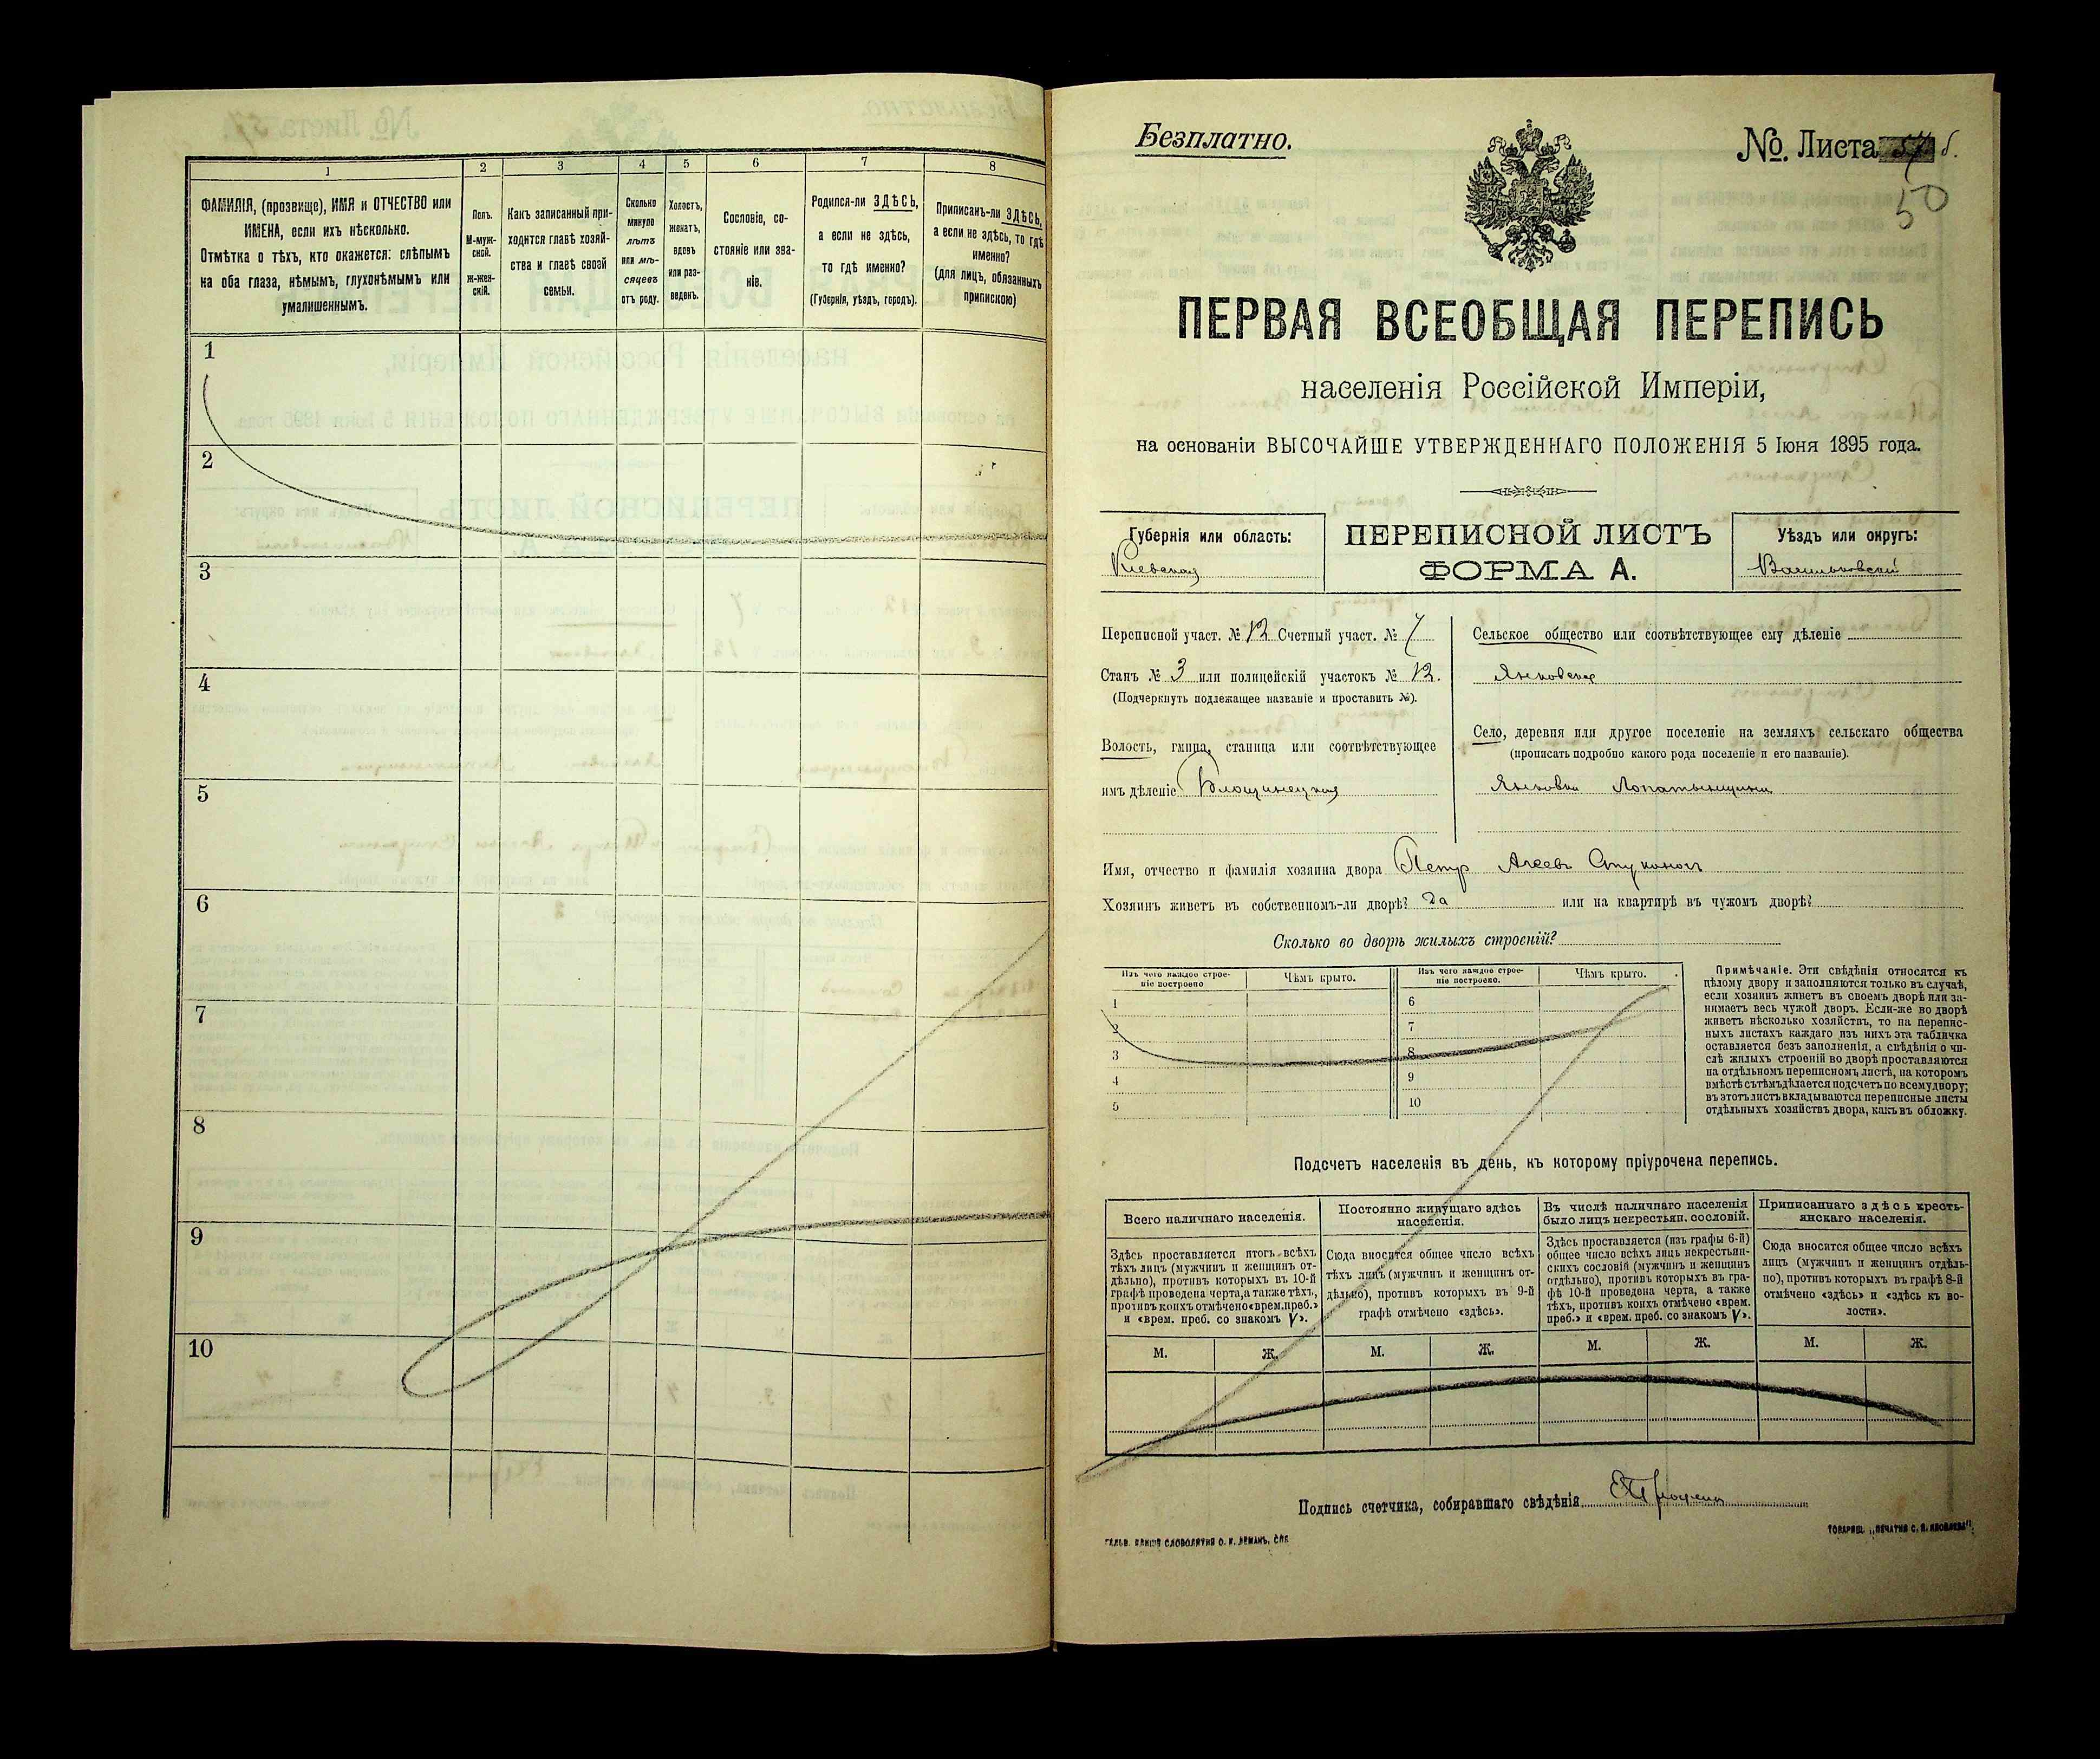 1
2
3
4
5
6
7
8
ФАМИЛІЯ, (прозвище), ИМЯ и ОТЧЕСТВО или
ИМЕНА, если ихъ нѣсколько.
Отмѣтка о тѣхъ, кто окажется: слѣпымъ
на оба глаза, нѣмымъ, глухонѣмымъ или
умалишеннымъ.
Полъ.
М-муж-
ской.
Ж-жен-
скій.
Какъ записанный при-
ходится главѣ хозяй-
ства и главѣ своей
семьи.
Сколько
минуло
лѣтъ
или мѣ-
сяцевъ
отъ роду.
Холостъ,
женатъ,
вдовъ
или раз-
веденъ.
Сословіе, со-
стояніе или зва-
ніе.
Родился-ли ЗДѢСЬ,
а если не здѣсь,
то гдѣ именно?
(Губернія, уѣздъ, городъ).
Приписанъ-ли ЗДѢСЬ,
а если не здѣсь, то гдѣ
именно?
(для лицъ, обязанныхъ
припискою)
1
2
3
4
5
6
7
8
9
10
Безплатно.
№. Листа 57 б.
50
ПЕРВАЯ ВСЕОБЩАЯ ПЕРЕПИСЬ
населенія Россійской Имперіи,
на основаніи ВЫСОЧАЙШЕ УТВЕРЖДЕННАГО ПОЛОЖЕНІЯ 5 Іюня 1895 года.
Губернія или область:
Кіевская
ПЕРЕПИСНОЙ ЛИСТЪ
ФОРМА А.
Уѣздъ или округъ:
Васильковскій
Переписной участ. № 12 Счетный участ. № 7
Станъ № 3 или полицейскій участокъ № 12.
(Подчеркнуть подлежащее названіе и проставить №).
Волость, гмина, станица или соотвѣтствующее
имъ дѣленіе Блощинецкая
Сельское общество или соотвѣтствующее ему дѣленіе
Янковское
Село, деревня или другое поселеніе на земляхъ сельскаго общества
(прописать подробно какого рода поселеніе и его названіе).
Янковка Лопатынщина
Имя, отчество и фамилія хозяина двора Петр
Хозяинъ живетъ въ собственномъ-ли дворѣ? да или на квартирѣ въ чужомъ дворѣ?
Сколько во дворѣ жилыхъ строеній?
Изъ чего каждое строе-
ніе построено
Чѣмъ крыто.
Изъ чего каждое строе-
ніе построено.
Чѣмъ крыто.
1
2
3
4
5
6
7
8
9
10
Примѣчаніе. Эти свѣдѣнія относятся къ
цѣлому двору и заполняются только въ случаѣ,
если хозяинъ живетъ въ своемъ дворѣ или за-
нимаетъ весь чужой дворъ. Если-же во дворѣ
живетъ нѣсколько хозяйствъ, то на перепис-
ныхъ листахъ каждаго изъ нихъ эта табличка
оставляется безъ заполненія, а свѣдѣнія о чи-
слѣ жилыхъ строеній во дворѣ проставляются
на отдѣльномъ переписномъ листѣ, на которомъ
вмѣстѣ съ тѣмъ дѣлается подсчетъ по всему двору;
въ этотъ листъ вкладываются переписные листы
отдѣльныхъ хозяйствъ двора, какъ въ обложку.
Подсчетъ населенія въ день, къ которому пріурочена перепись.
Всего наличнаго населенія.
Здѣсь проставляется итогъ всѣхъ
тѣхъ лицъ (мужчинъ и женщинъ от-
дѣльно), противъ которыхъ въ 10-й
графѣ проведена черта, а также тѣхъ,
противъ коихъ отмѣчено «врем. преб.»
и «врем. преб. со знакомъ V».
Постоянно живущаго здѣсь
населенія.
Сюда вносится общее число всѣхъ
тѣхъ лицъ (мужчинъ и женщинъ от-
дѣльно), противъ которыхъ въ 9-й
графѣ отмѣчено «здѣсь».
Въ числѣ наличнаго населенія
было лицъ некрестьян. сословій.
Здѣсь проставляется (изъ графы 6-й)
общее число всѣхъ лицъ некрестьян-
скихъ сословій (мужчинъ и женщинъ
отдѣльно), противъ которыхъ въ гра-
фѣ 10-й проведена черта, а также
тѣхъ, противъ коихъ отмѣчено «врем.
преб.» и «врем. преб. со знакомъ V».
Приписаннаго здѣсь кресть-
янскаго населенія.
Сюда вносится общее число всѣхъ
лицъ (мужчинъ и женщинъ отдѣль-
но), противъ которыхъ въ графѣ 8-й
отмѣчено «здѣсь» и «здѣсь къ во-
лости».
М.
Ж.
М.
Ж.
М.
Ж.
М.
Ж.
Подпись счетчика, собиравшаго свѣдѣнія
ГАЛЬВ. КЛИШЕ СЛОВОЛИТНЯ О. И. ЛЕМАНЪ, СПБ
ТОВАРИЩ. „ПЕЧАТНЯ С. П. ЯКОВЛЕВА“